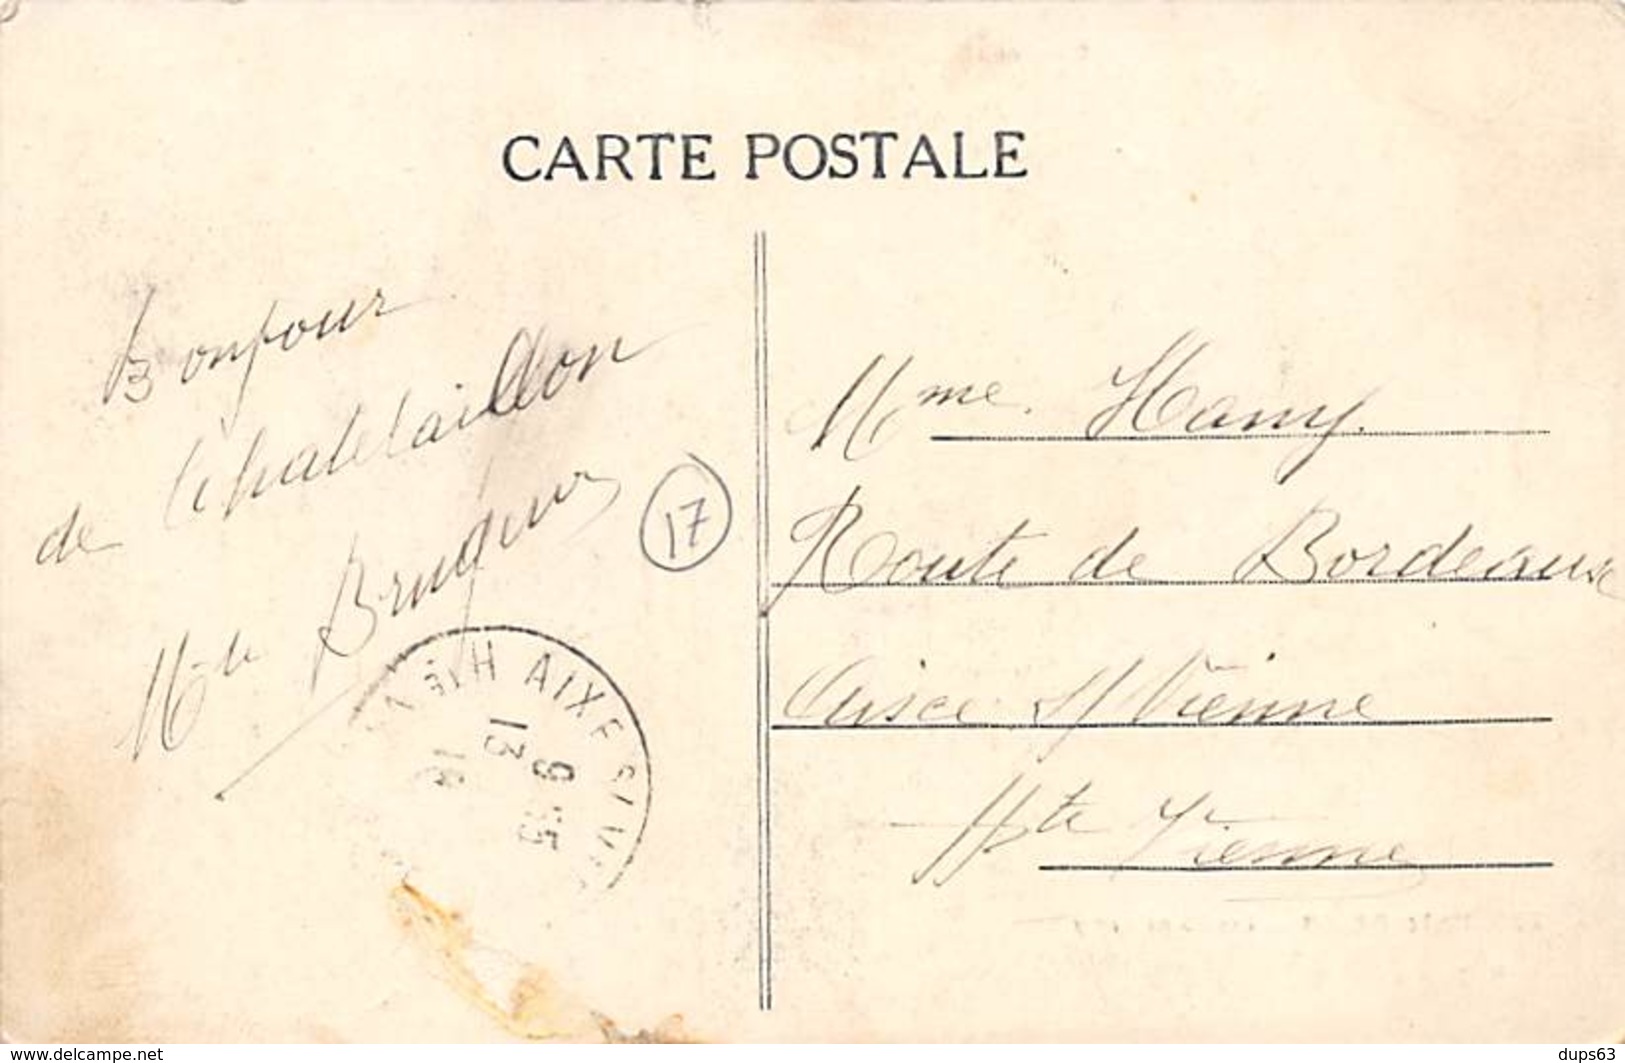 CARTE POSTALE
Bonjour
de Chatelaillon
Mlle
17
Mme Hamy.
Route de Bordeaux
Aixe s/ Vienne
Hte Vienne
AIXE S VI
9 35
13
www.delcampe.net
dups63